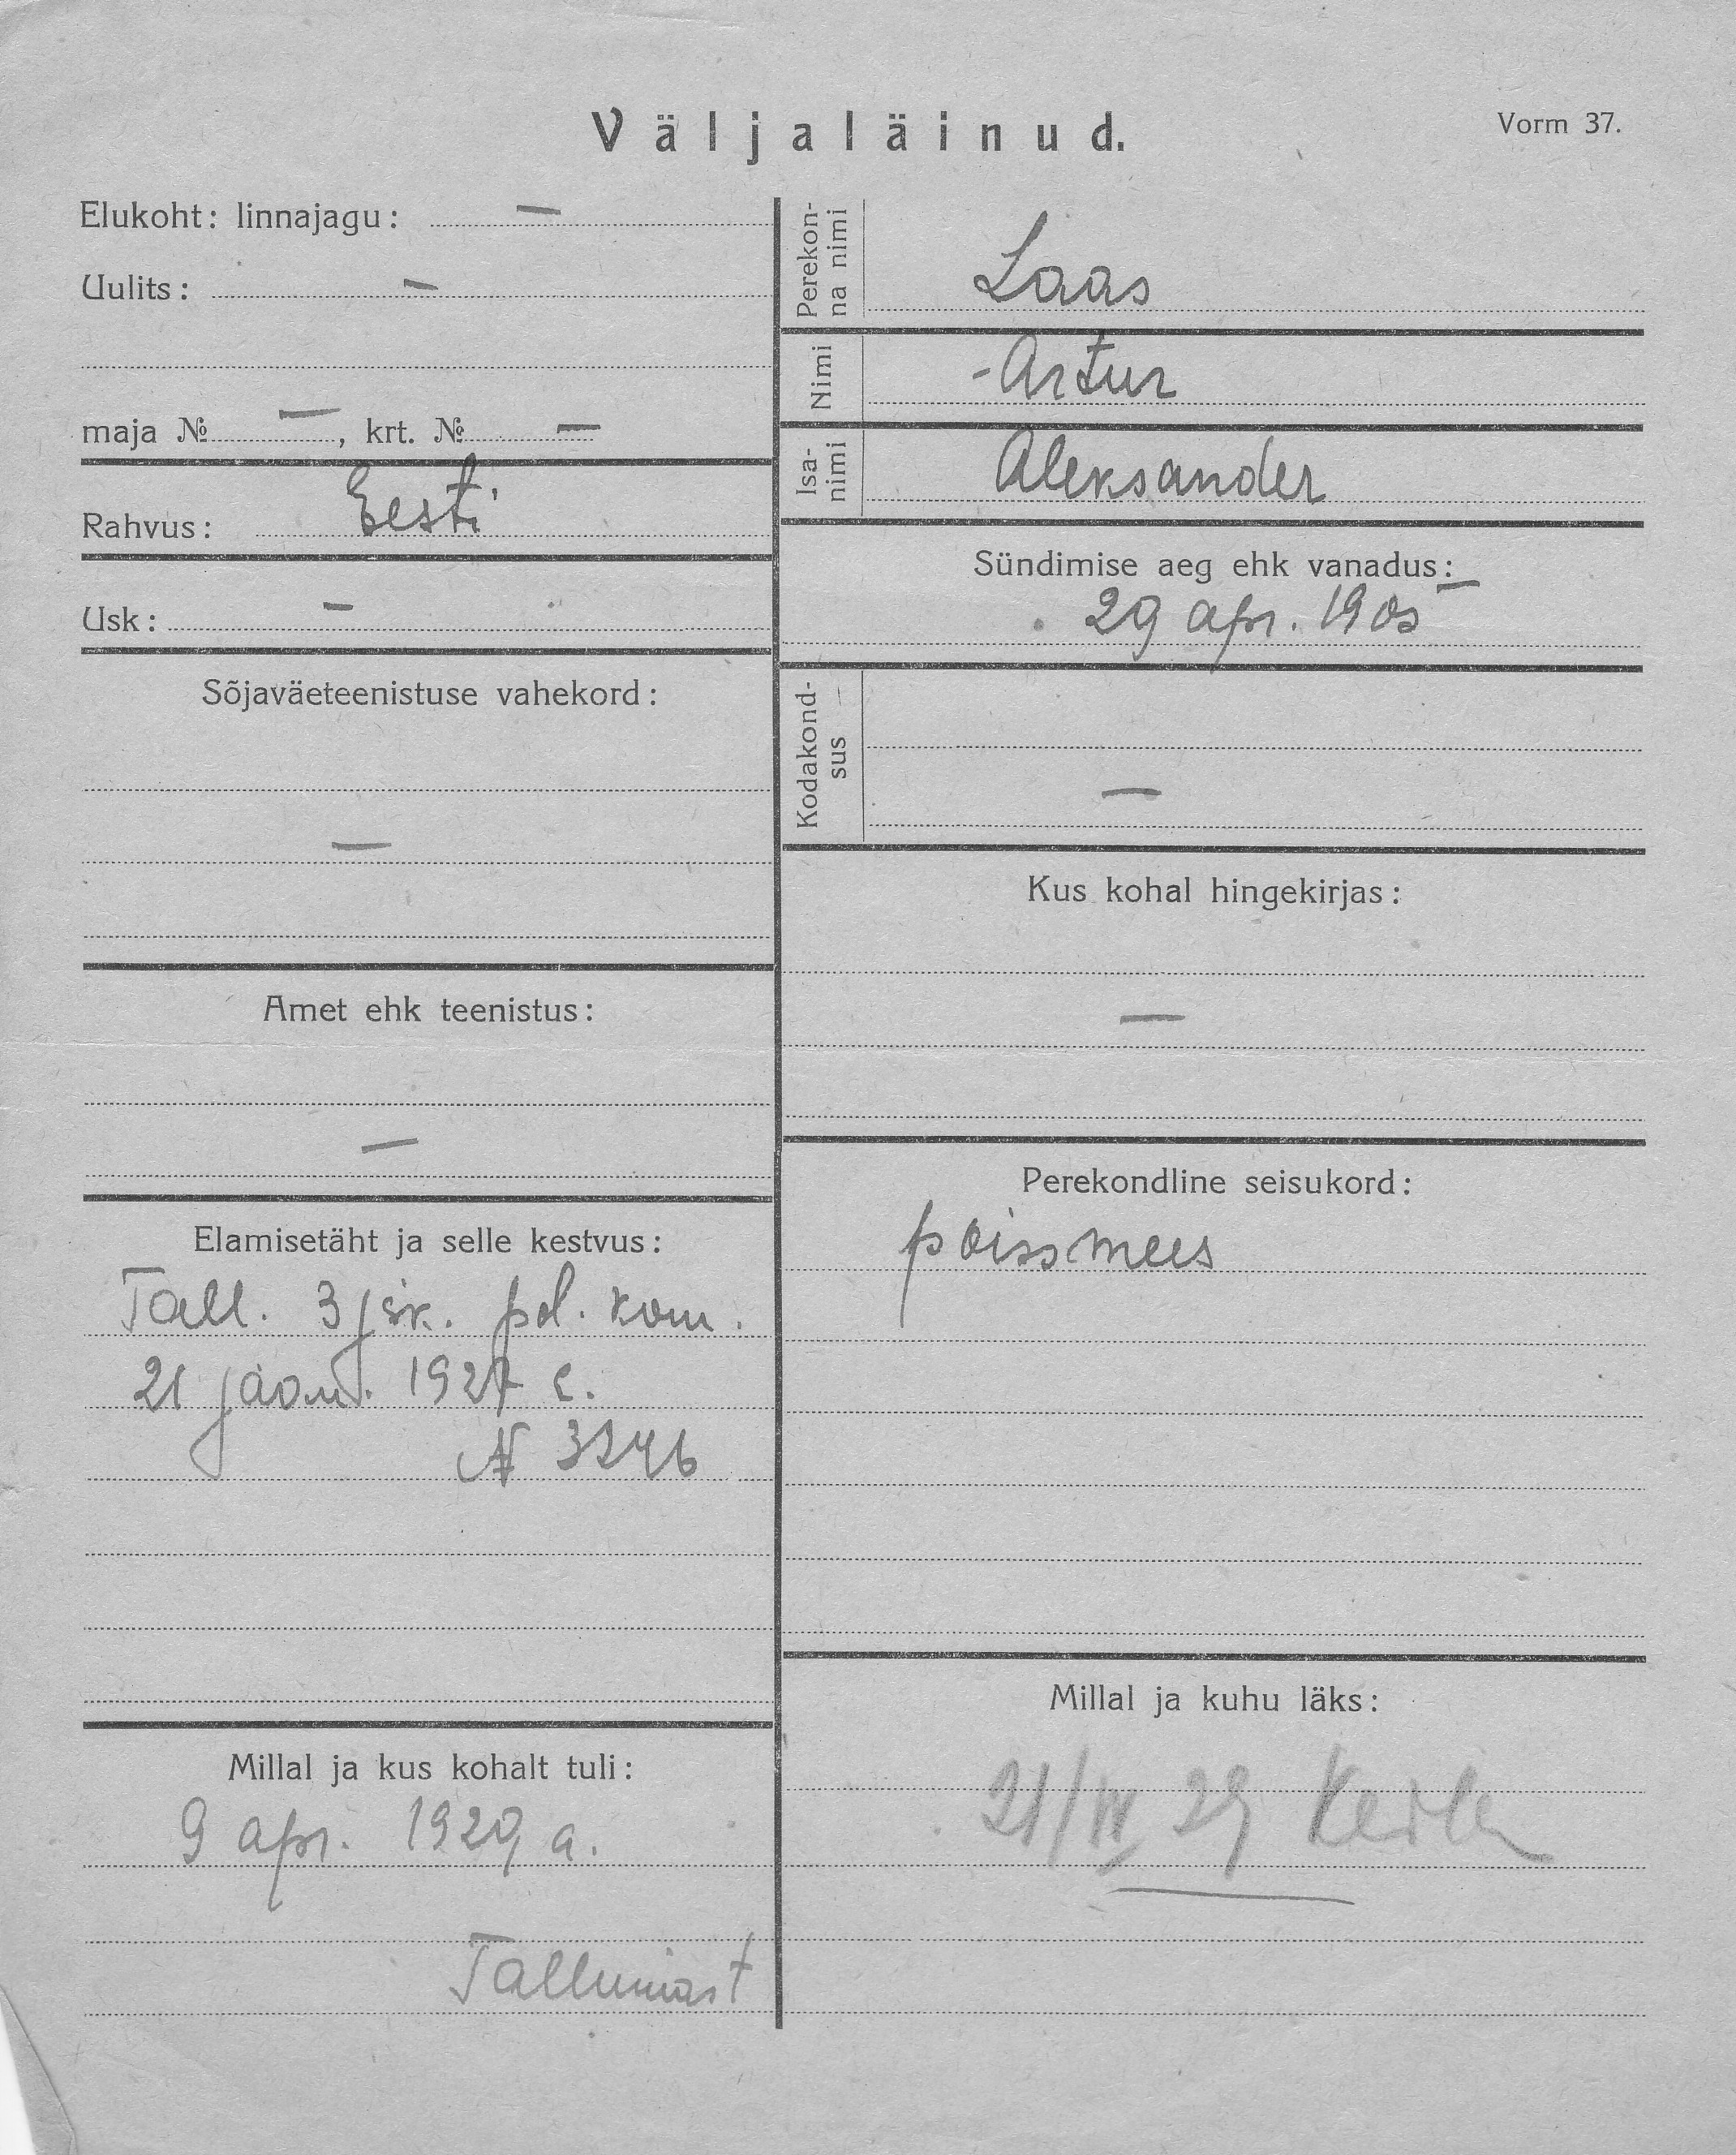 Väljaläinud.
Vorm 37.
Elukoht: linnajagu: —
Uulits: —
maja № —, krt. № —
Rahvus: Eesti
Usk: —
Sõjaväeteenistuse vahekord:
—
Amet ehk teenistus:
—
Elamisetäht ja selle kestvus:
Tall. 3 jsk. pol. kom.
21 jaan. 1927 a.
N
Millal ja kus kohalt tuli:
9 apr. 1929 a.
Tallinnast
Perekon-
na nimi
Laas
Nimi
Artur
Isa-
nimi
Aleksander
Sündimise aeg ehk vanadus:
29 apr. 1905
Kodakond-
sus
—
Kus kohal hingekirjas:
—
Perekondline seisukord:
poissmees
Millal ja kuhu läks:
21/IV 29 Keila